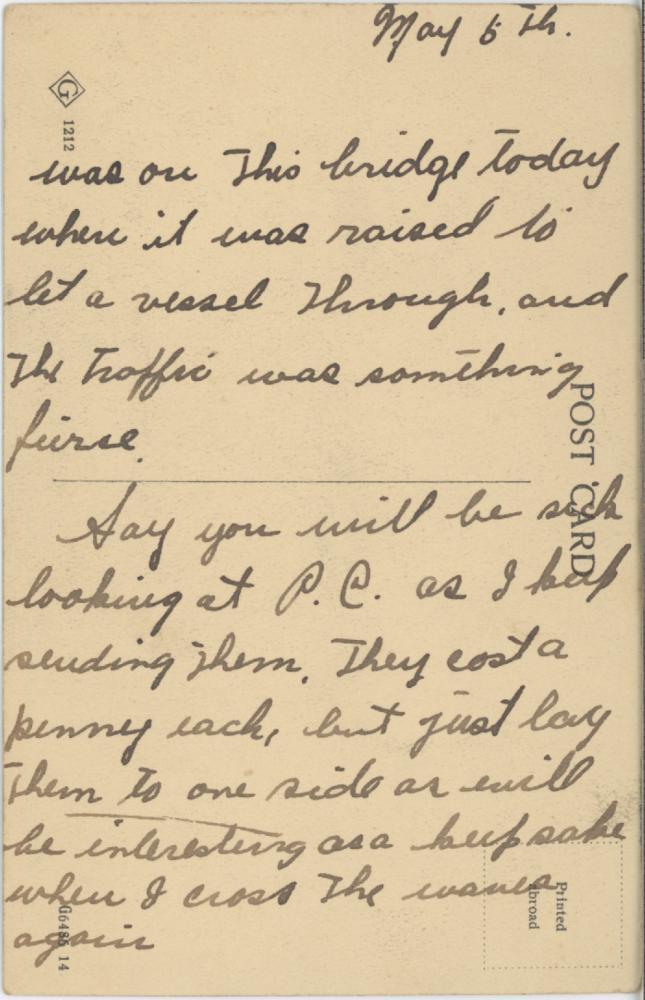 May 6 Th.
G
1212
was on This bridge today
when it was raised to
let a vessel Through, and
The Traffic was something
fierse.
POST CARD
Say you will be sick
looking at P.C. as I keep
sending Them. They cost a
penny each, but just lay
Them to one side as will
be interesting as a keep sake
when I cross The waves
again
Printed
abroad
G6486 14